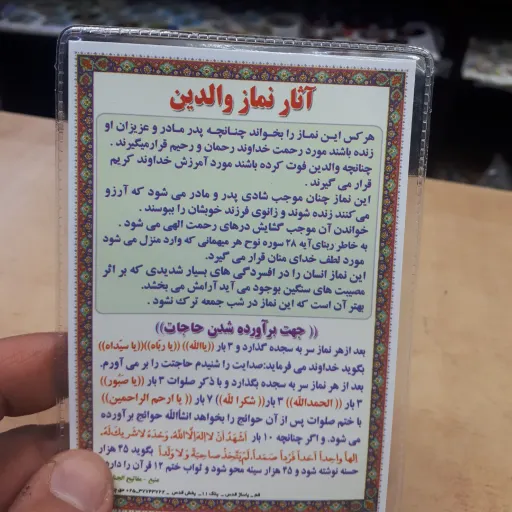 آثار نماز والدین
هرکس این نماز را بخواند چنانچه پدر مادر و عزیزان او
زنده باشند مورد رحمت خداوند رحمان و رحیم قرارمیگیرند .
چنانچه والدین فوت کرده باشند مورد آمرزش خداوند کریم
قرار می گیرند .
این نماز چنان موجب شادی پدر و مادر می شود که آرزو
می کنند زنده شوند و زانوی فرزند خویشان را ببوسند .
خواندن آن موجب گشایش درهای رحمت الهی می شود .
به خاطر ربنای آیه ۲۸ سوره نوح هر میهمانی که وارد منزل می شود
مورد لطف خدای منان قرار می گیرد.
این نماز انسان را در افسردگی های بسیار شدیدی که بر اثر
مصیبت های سنگین بوجود می آید آرامش می بخشد.
بهتر آن است که این نماز در شب جمعه ترک نشود .
(( جهت برآورده شدن حاجات))
بعد از هر نماز سر به سجده گذارد و ۳ بار ((یاالله)) ((یا ربّاه))((یا سیّداه))
بگوید خداوند می فرماید:صدایت را شنیدم حاجتت را بر می آورم.
بعد از هر نماز سر به سجده بگذارد و با ذکر صلوات ۳ بار ((یا صبور))
۳ بار (( الحمدالله)) ۳ بار((شکرا لله)) ۷ بار (( یا ارحم الراحمین))
با ختم صلوات پس از آن حوائج را بخواهد انشاالله حوائج برآورده
می شود. و اگر چنانچه ۱۰ بار اَشْهَدُ اَنْ لا اِلهَ اِلَّا اللهُ وَحْدَهُ لا شَریكَ لَهُ
اِلهاً واحِداً اَحَداً فَرْداً صَمَداً لَمْ یَتَّخِذْ صاحِبَةً وَلا وَلَداً بگوید ۴۵ هزار
حسنه نوشته شود و ۴۵ هزار سیئه محو شود و ثواب ختم ۱۲ قرآن را دارد
منبع - مفاتیح
قم_ پاساژ قدس_ پلاک ۱۱_ پخش قدس_